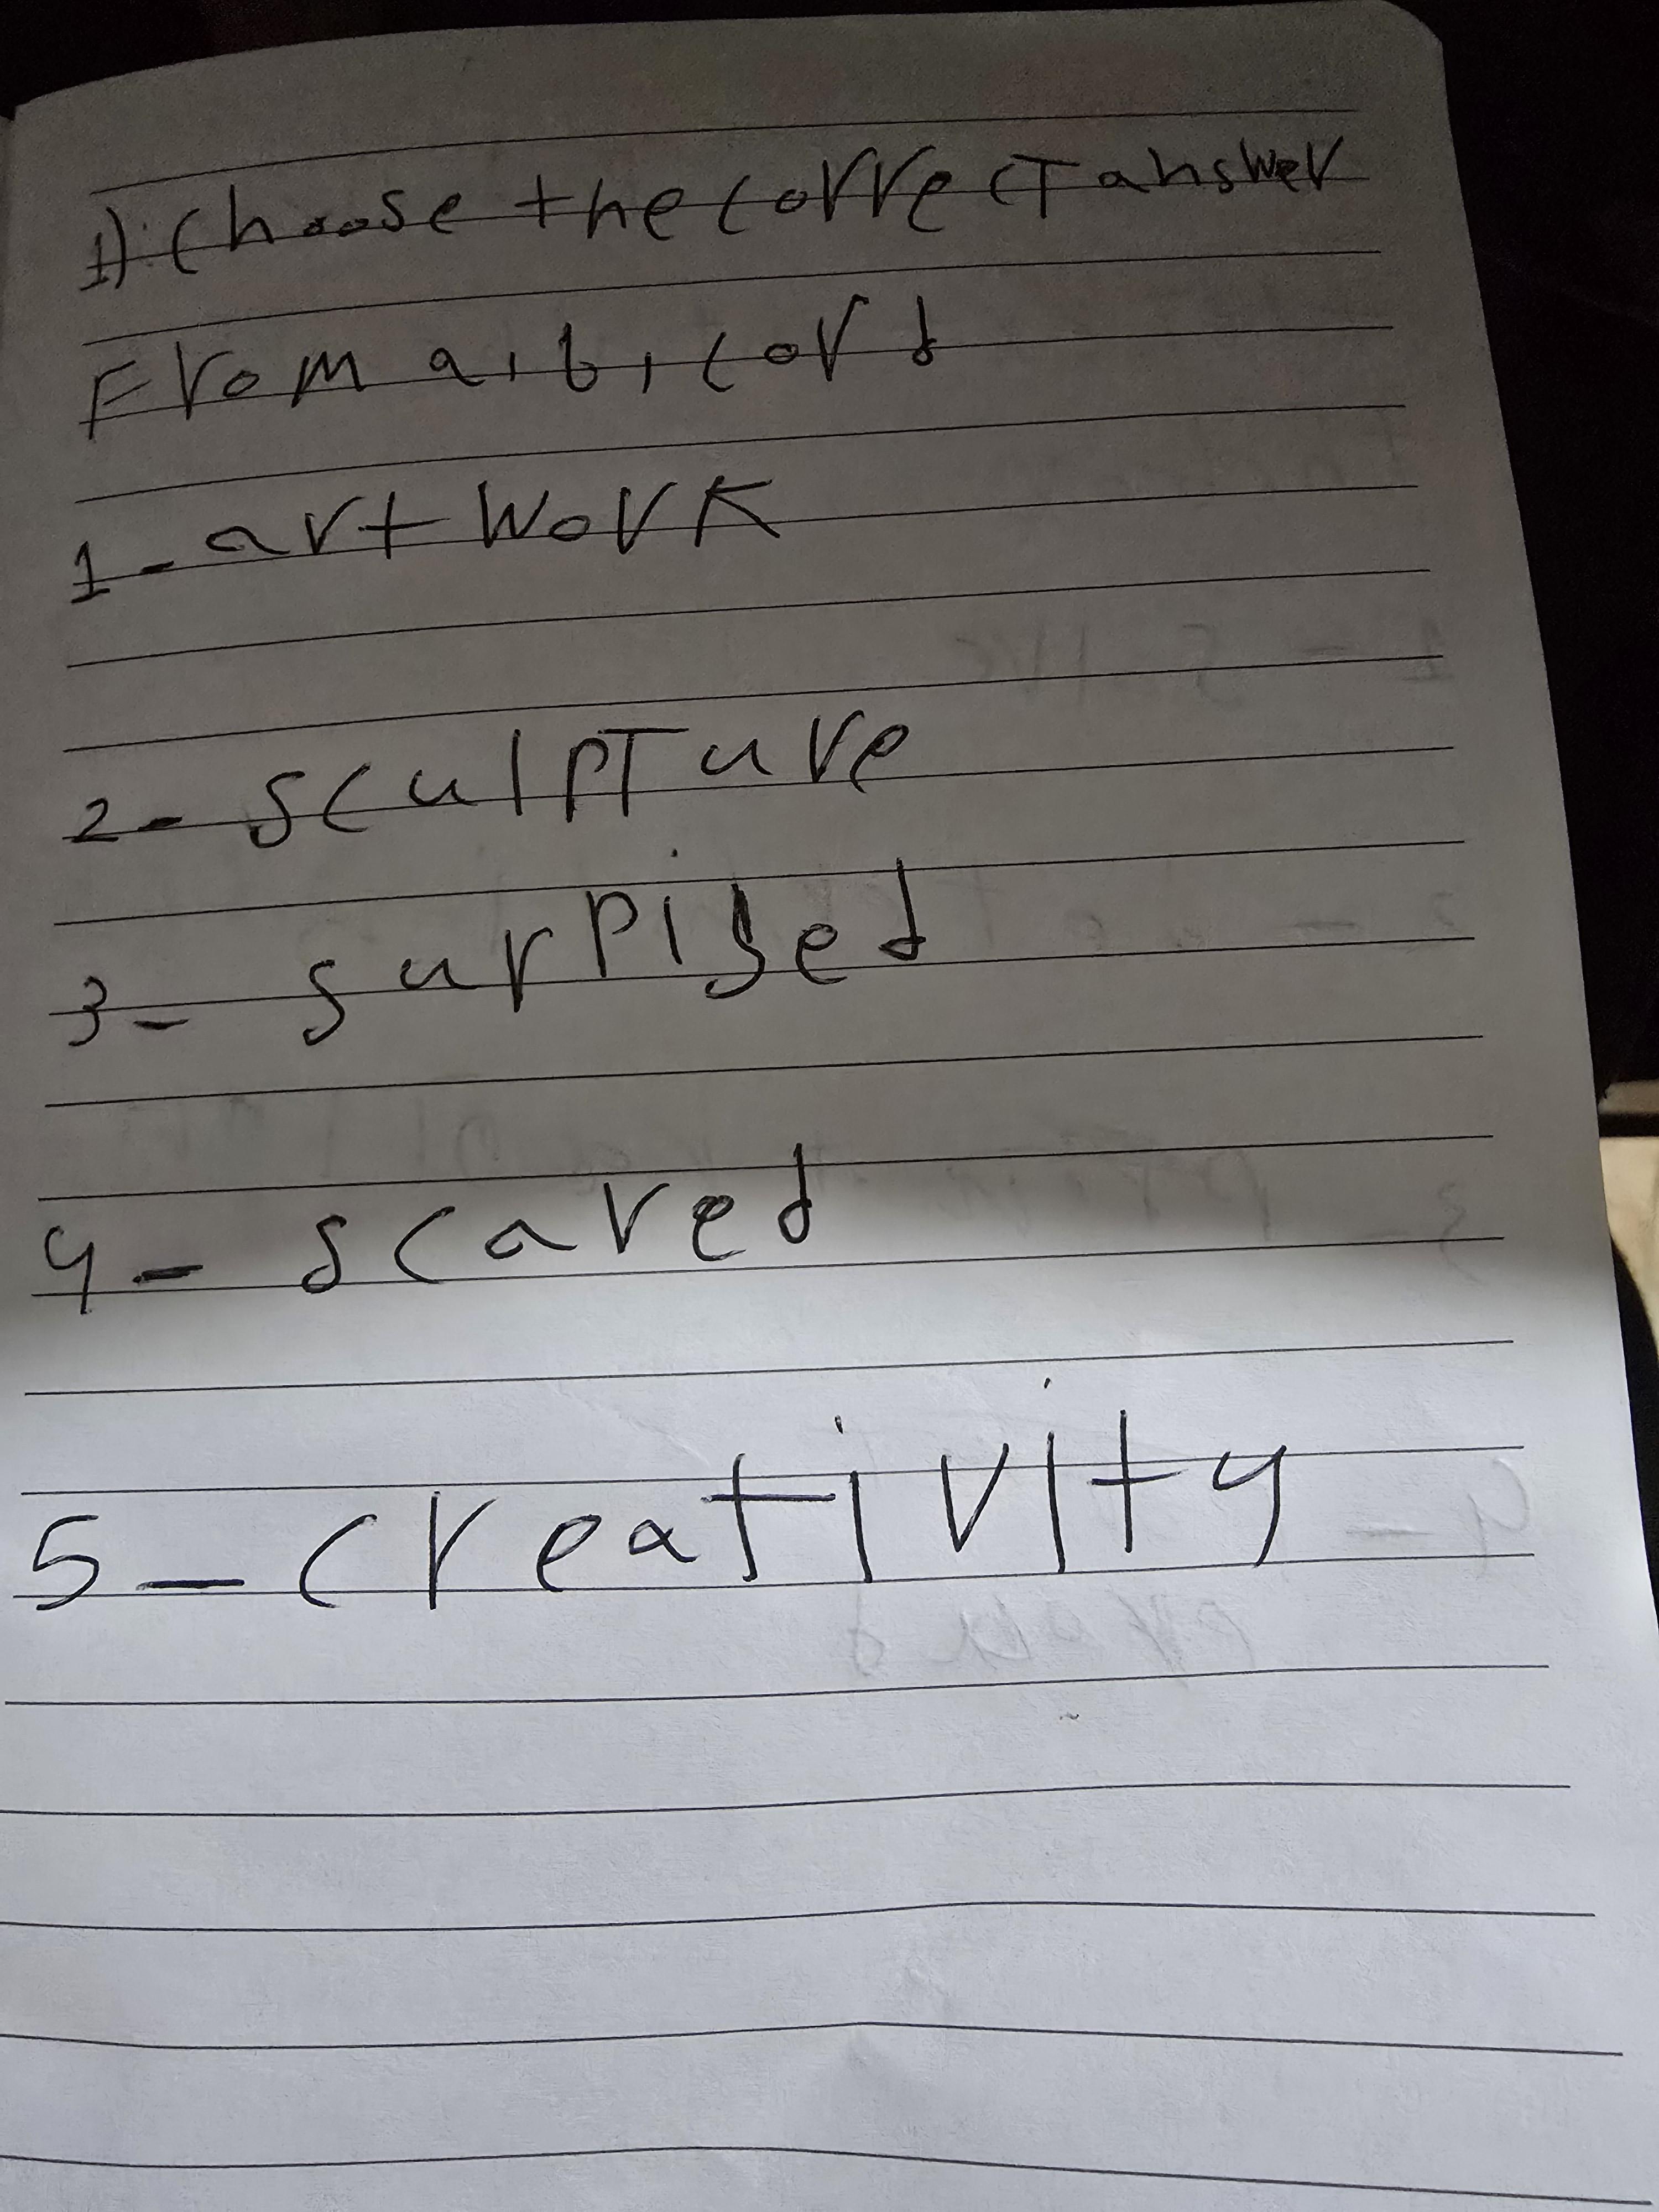 1): Choose the correct answer
From a, b, c or d
1- art work
2- sculpture
3- surpised
4- scared
5- creativity